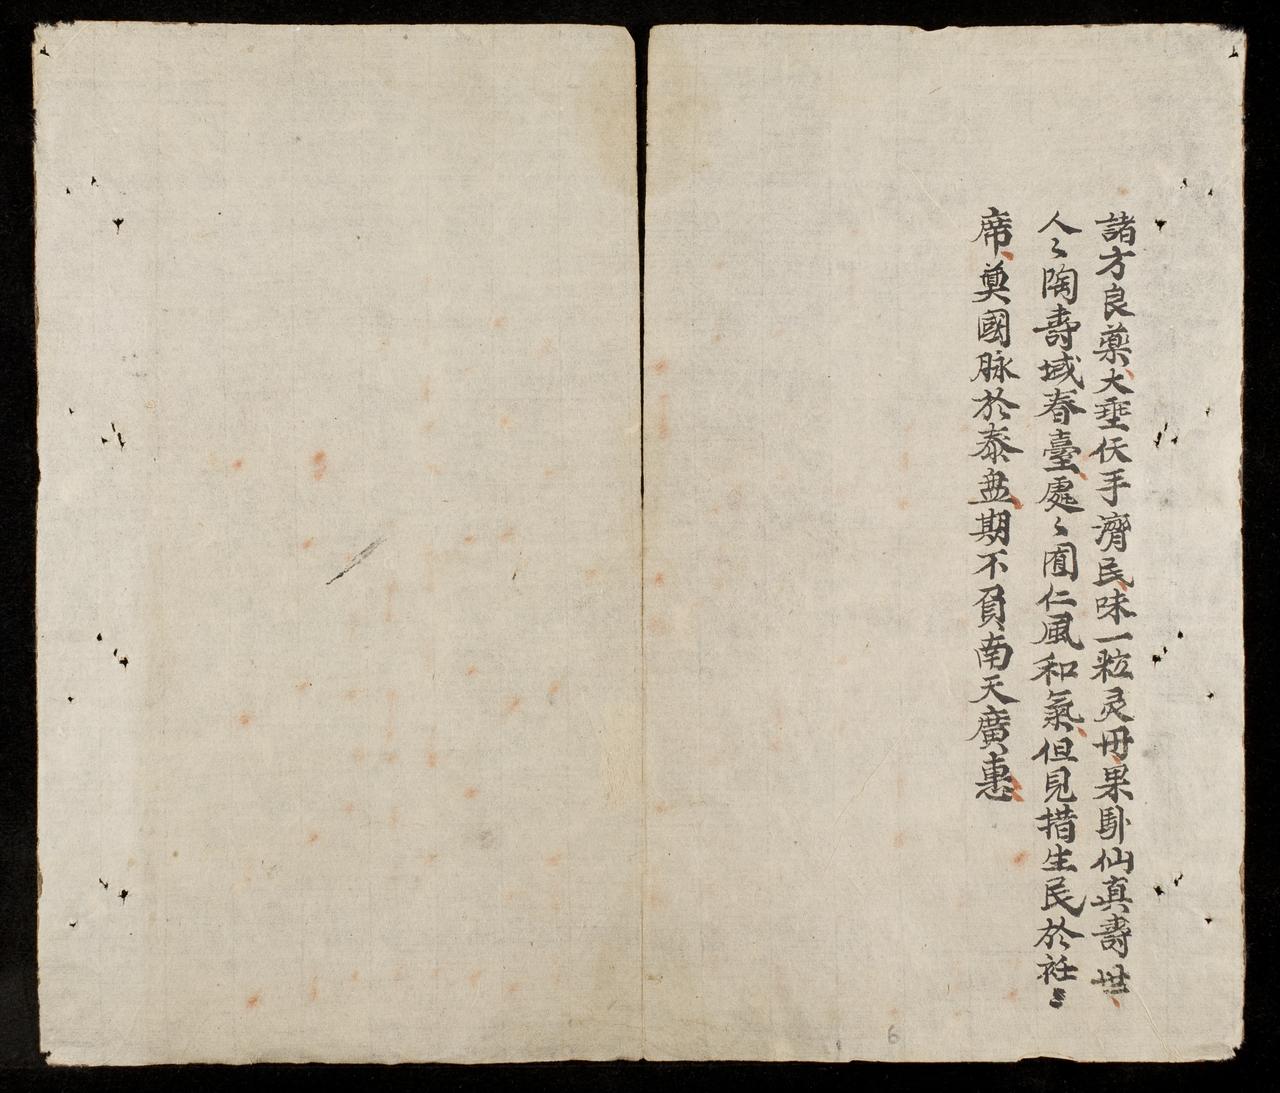 諸方良藥大垂伕手濟民味一粒灵丹果馭仙真壽世
人〻陶壽域春臺處〻囿仁風和氣但見措生民於衽〻
席奠國脉於泰盘期不負南天廣惠
6